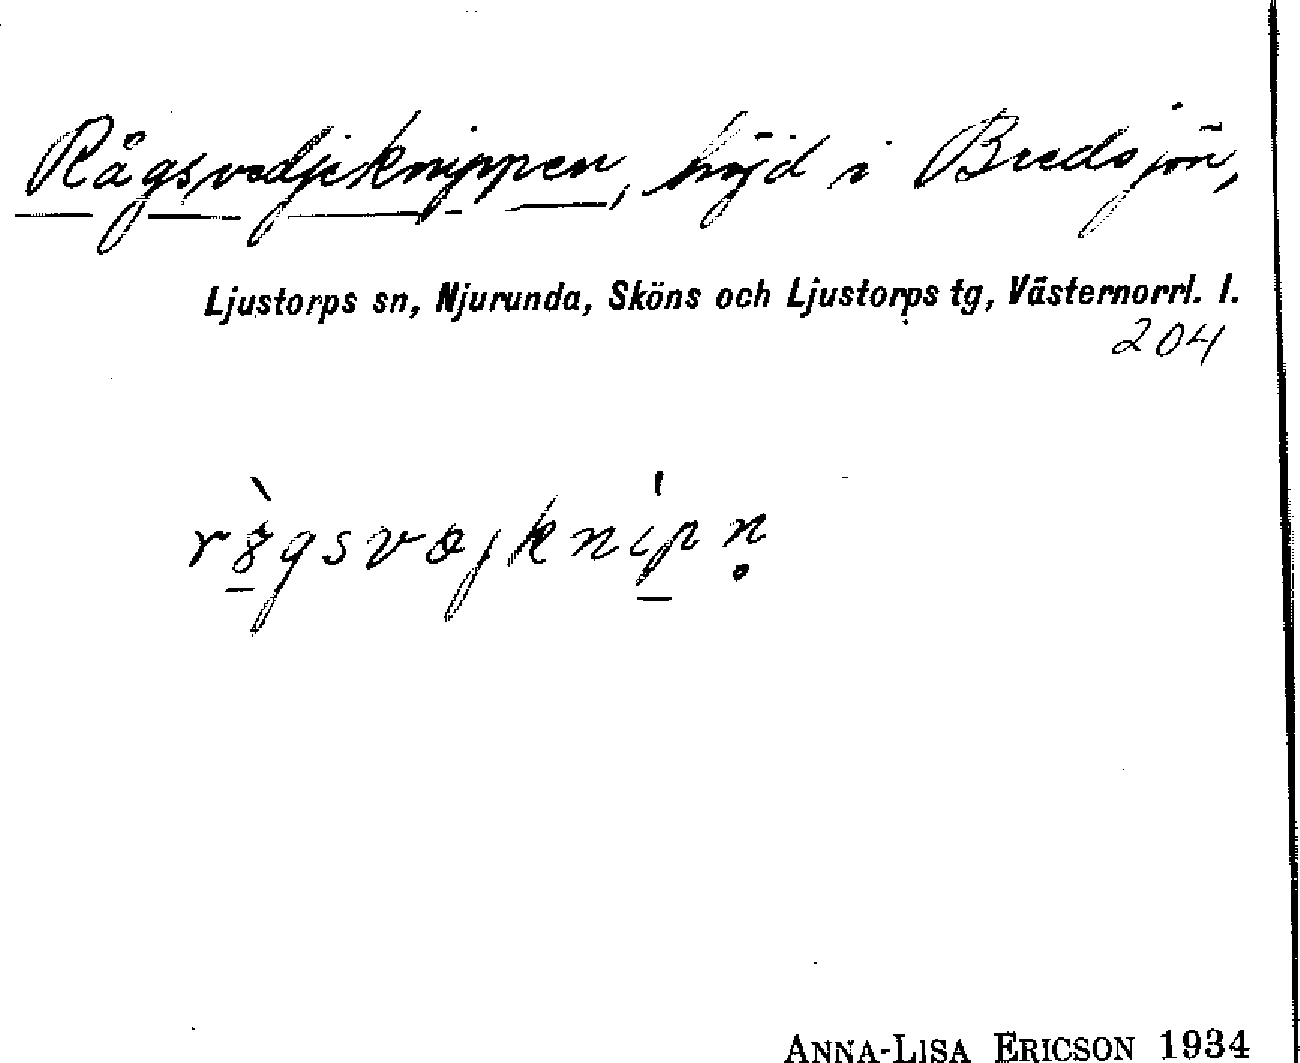 Rågsvedjeknippen, höjd i Bredsjön,
Ljustorps sn, Njurunda, Sköns och Ljustorps tg, Västernorrl. l.
204
ANNA-LISA ERICSON 1934